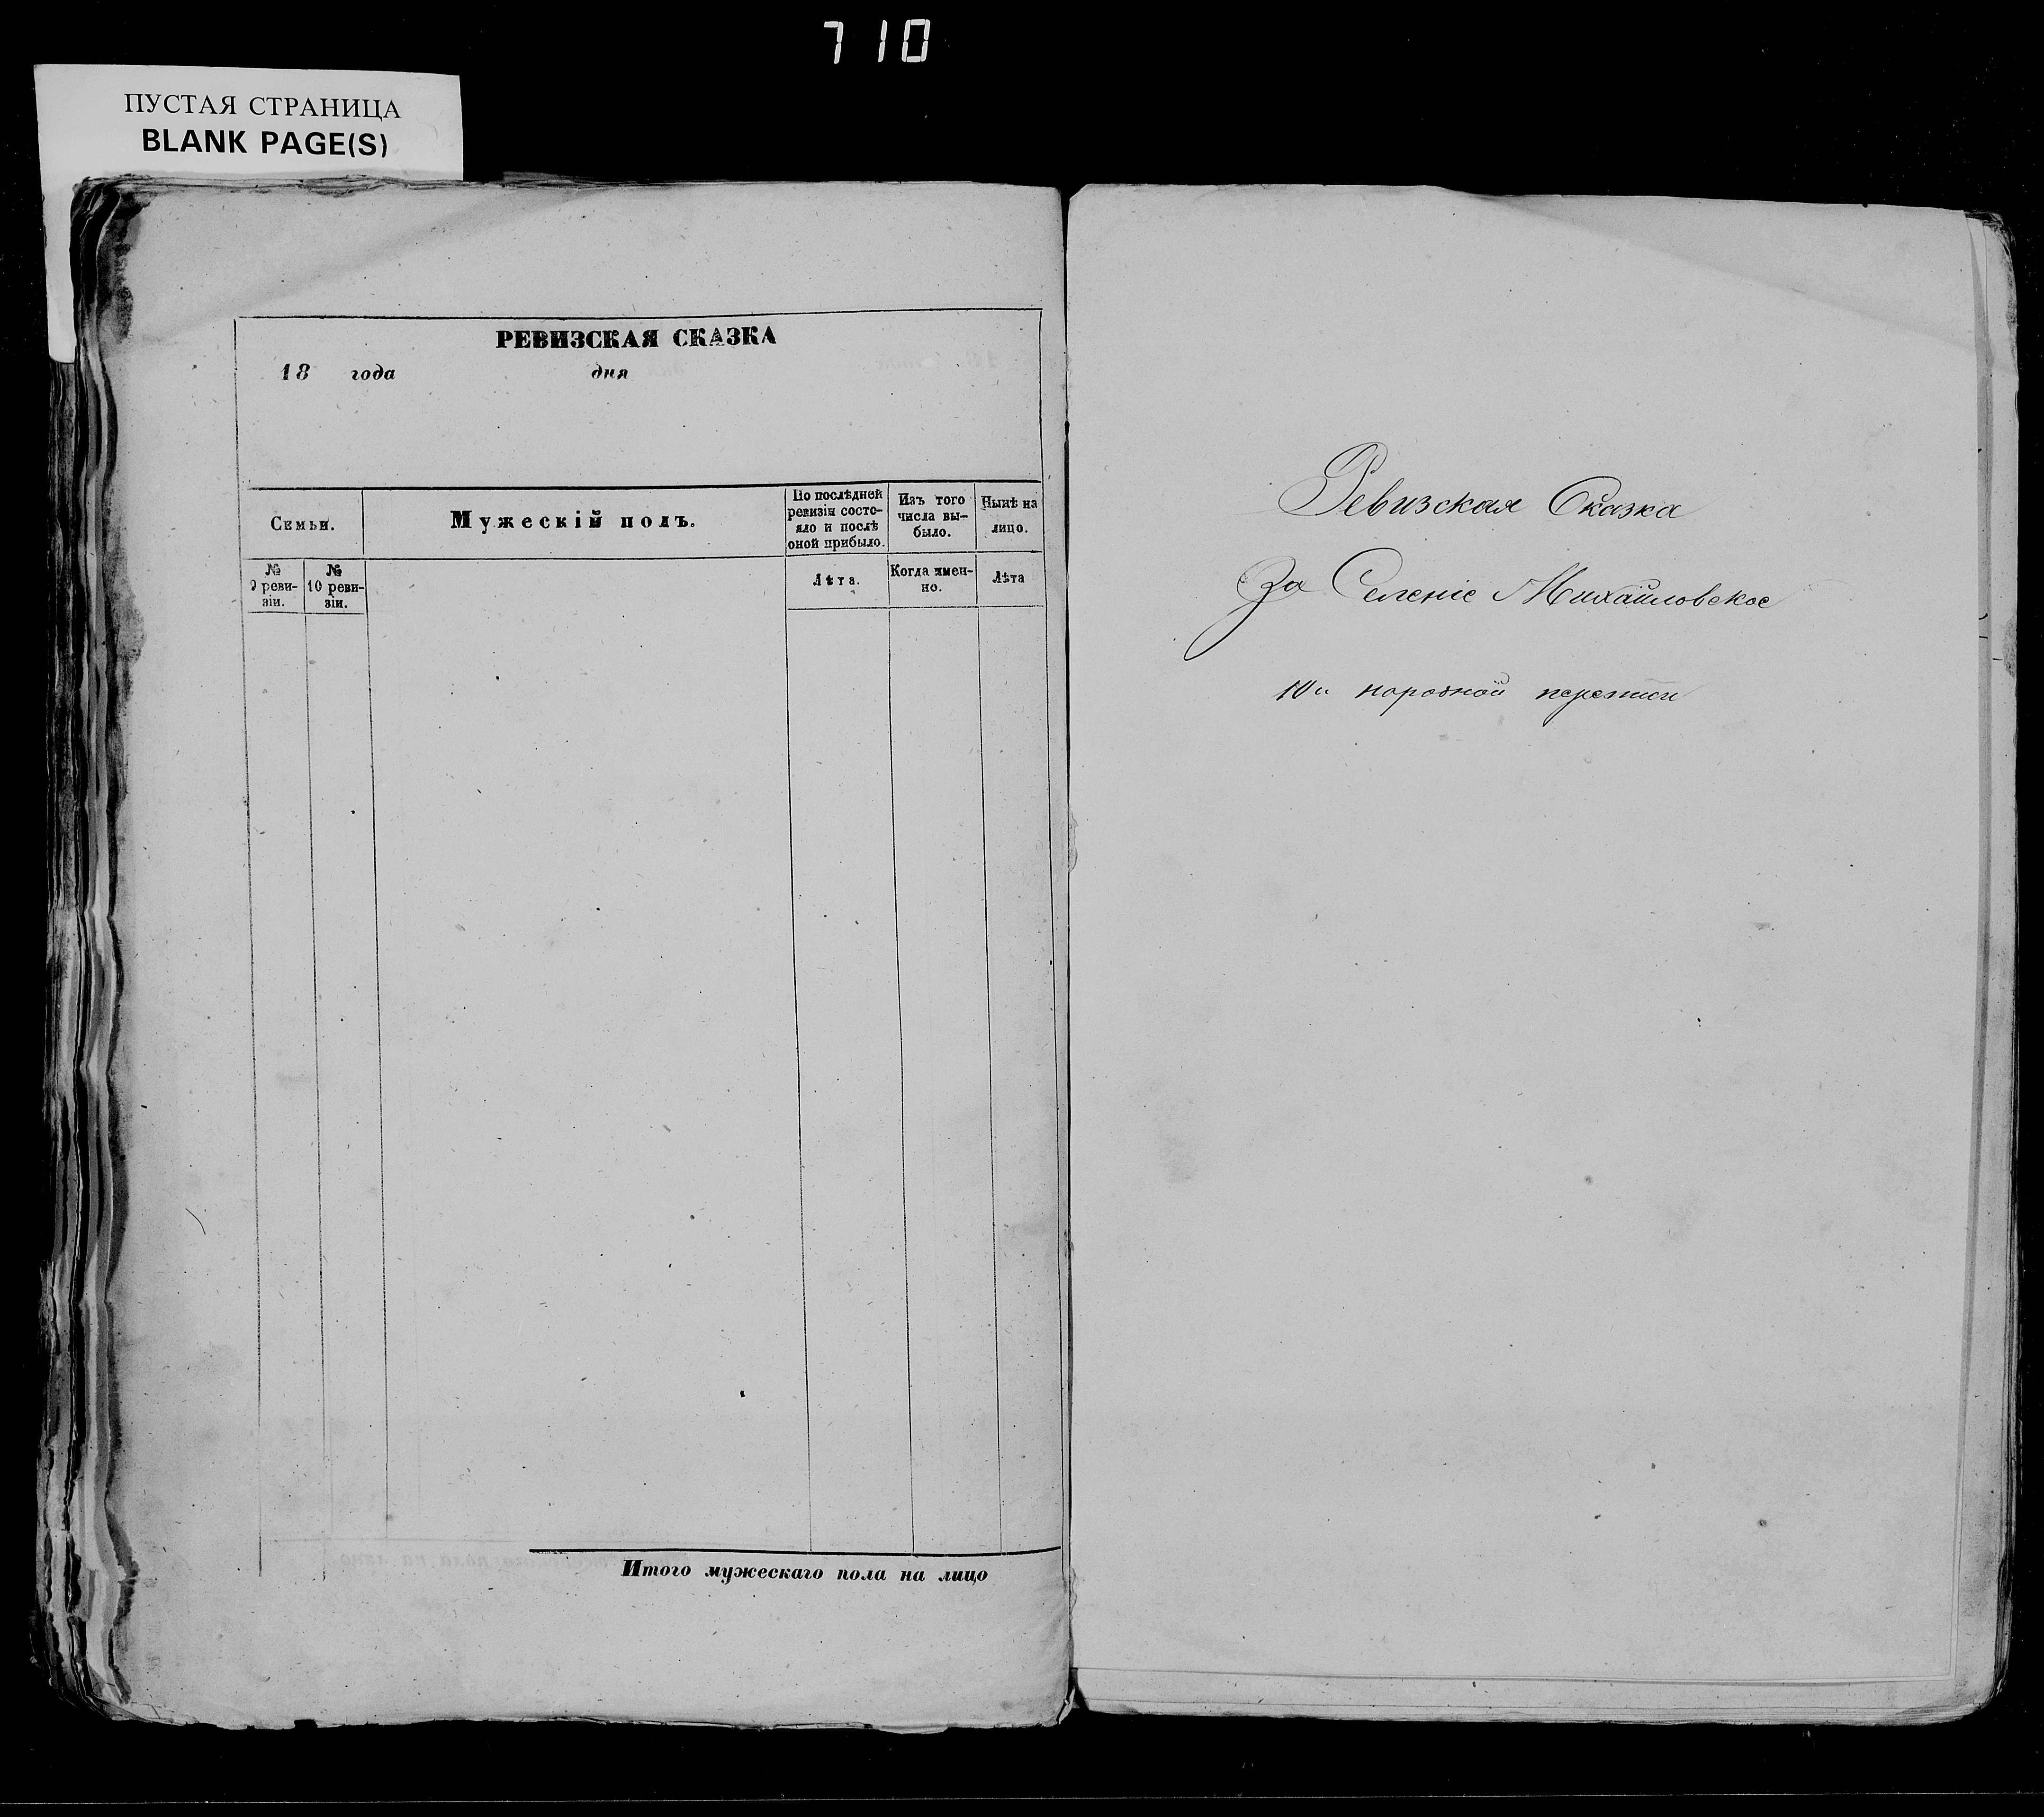 710
ПУСТАЯ СТРАНИЦА
BLANK PAGE(S)
РЕВИЗСКАЯ СКАЗКА
18 года дня
Семьи.
Мужескій полъ.
По послѣдней
ревизіи состо-
яло и послѣ
оной прибыло.
Изъ того
числа вы-
было.
Нынѣ на
лицо.
№
9 реви-
зіи.
№
10 реви-
зіи.
Лѣта.
Когда имен-
но.
Лѣта
Итого мужескаго пола на лицо
Ревизская Сказка
За Селеніе Михайловское
10й народной переписи